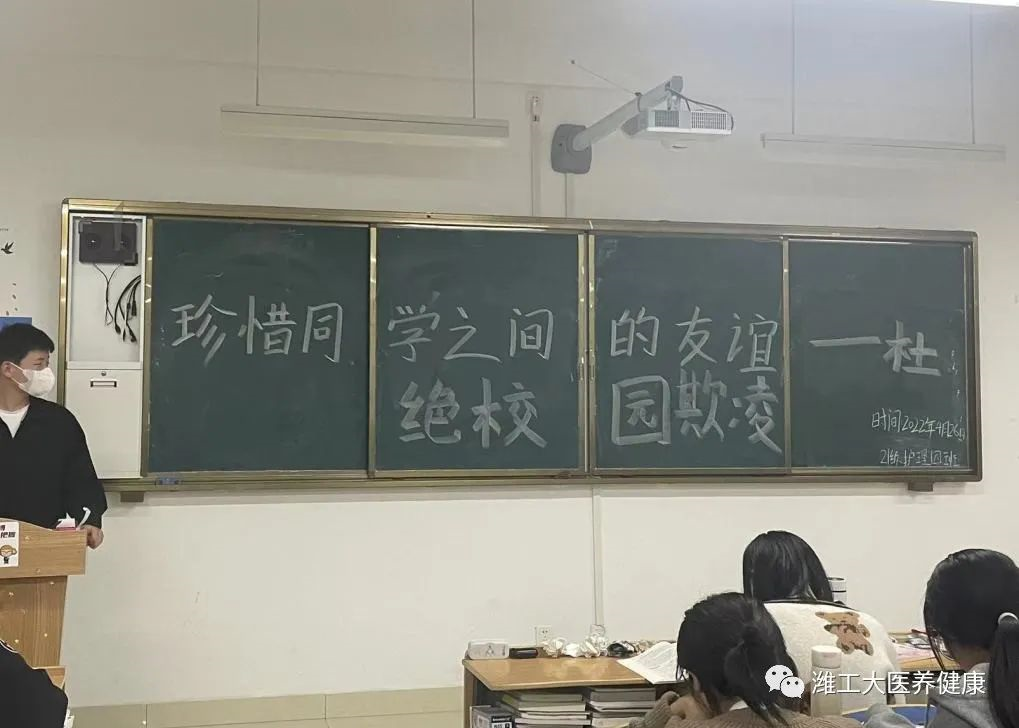 珍惜同学之间的友谊一杜
绝校园欺凌
时间2022年4月26日
21级护理四班
潍工大医养健康